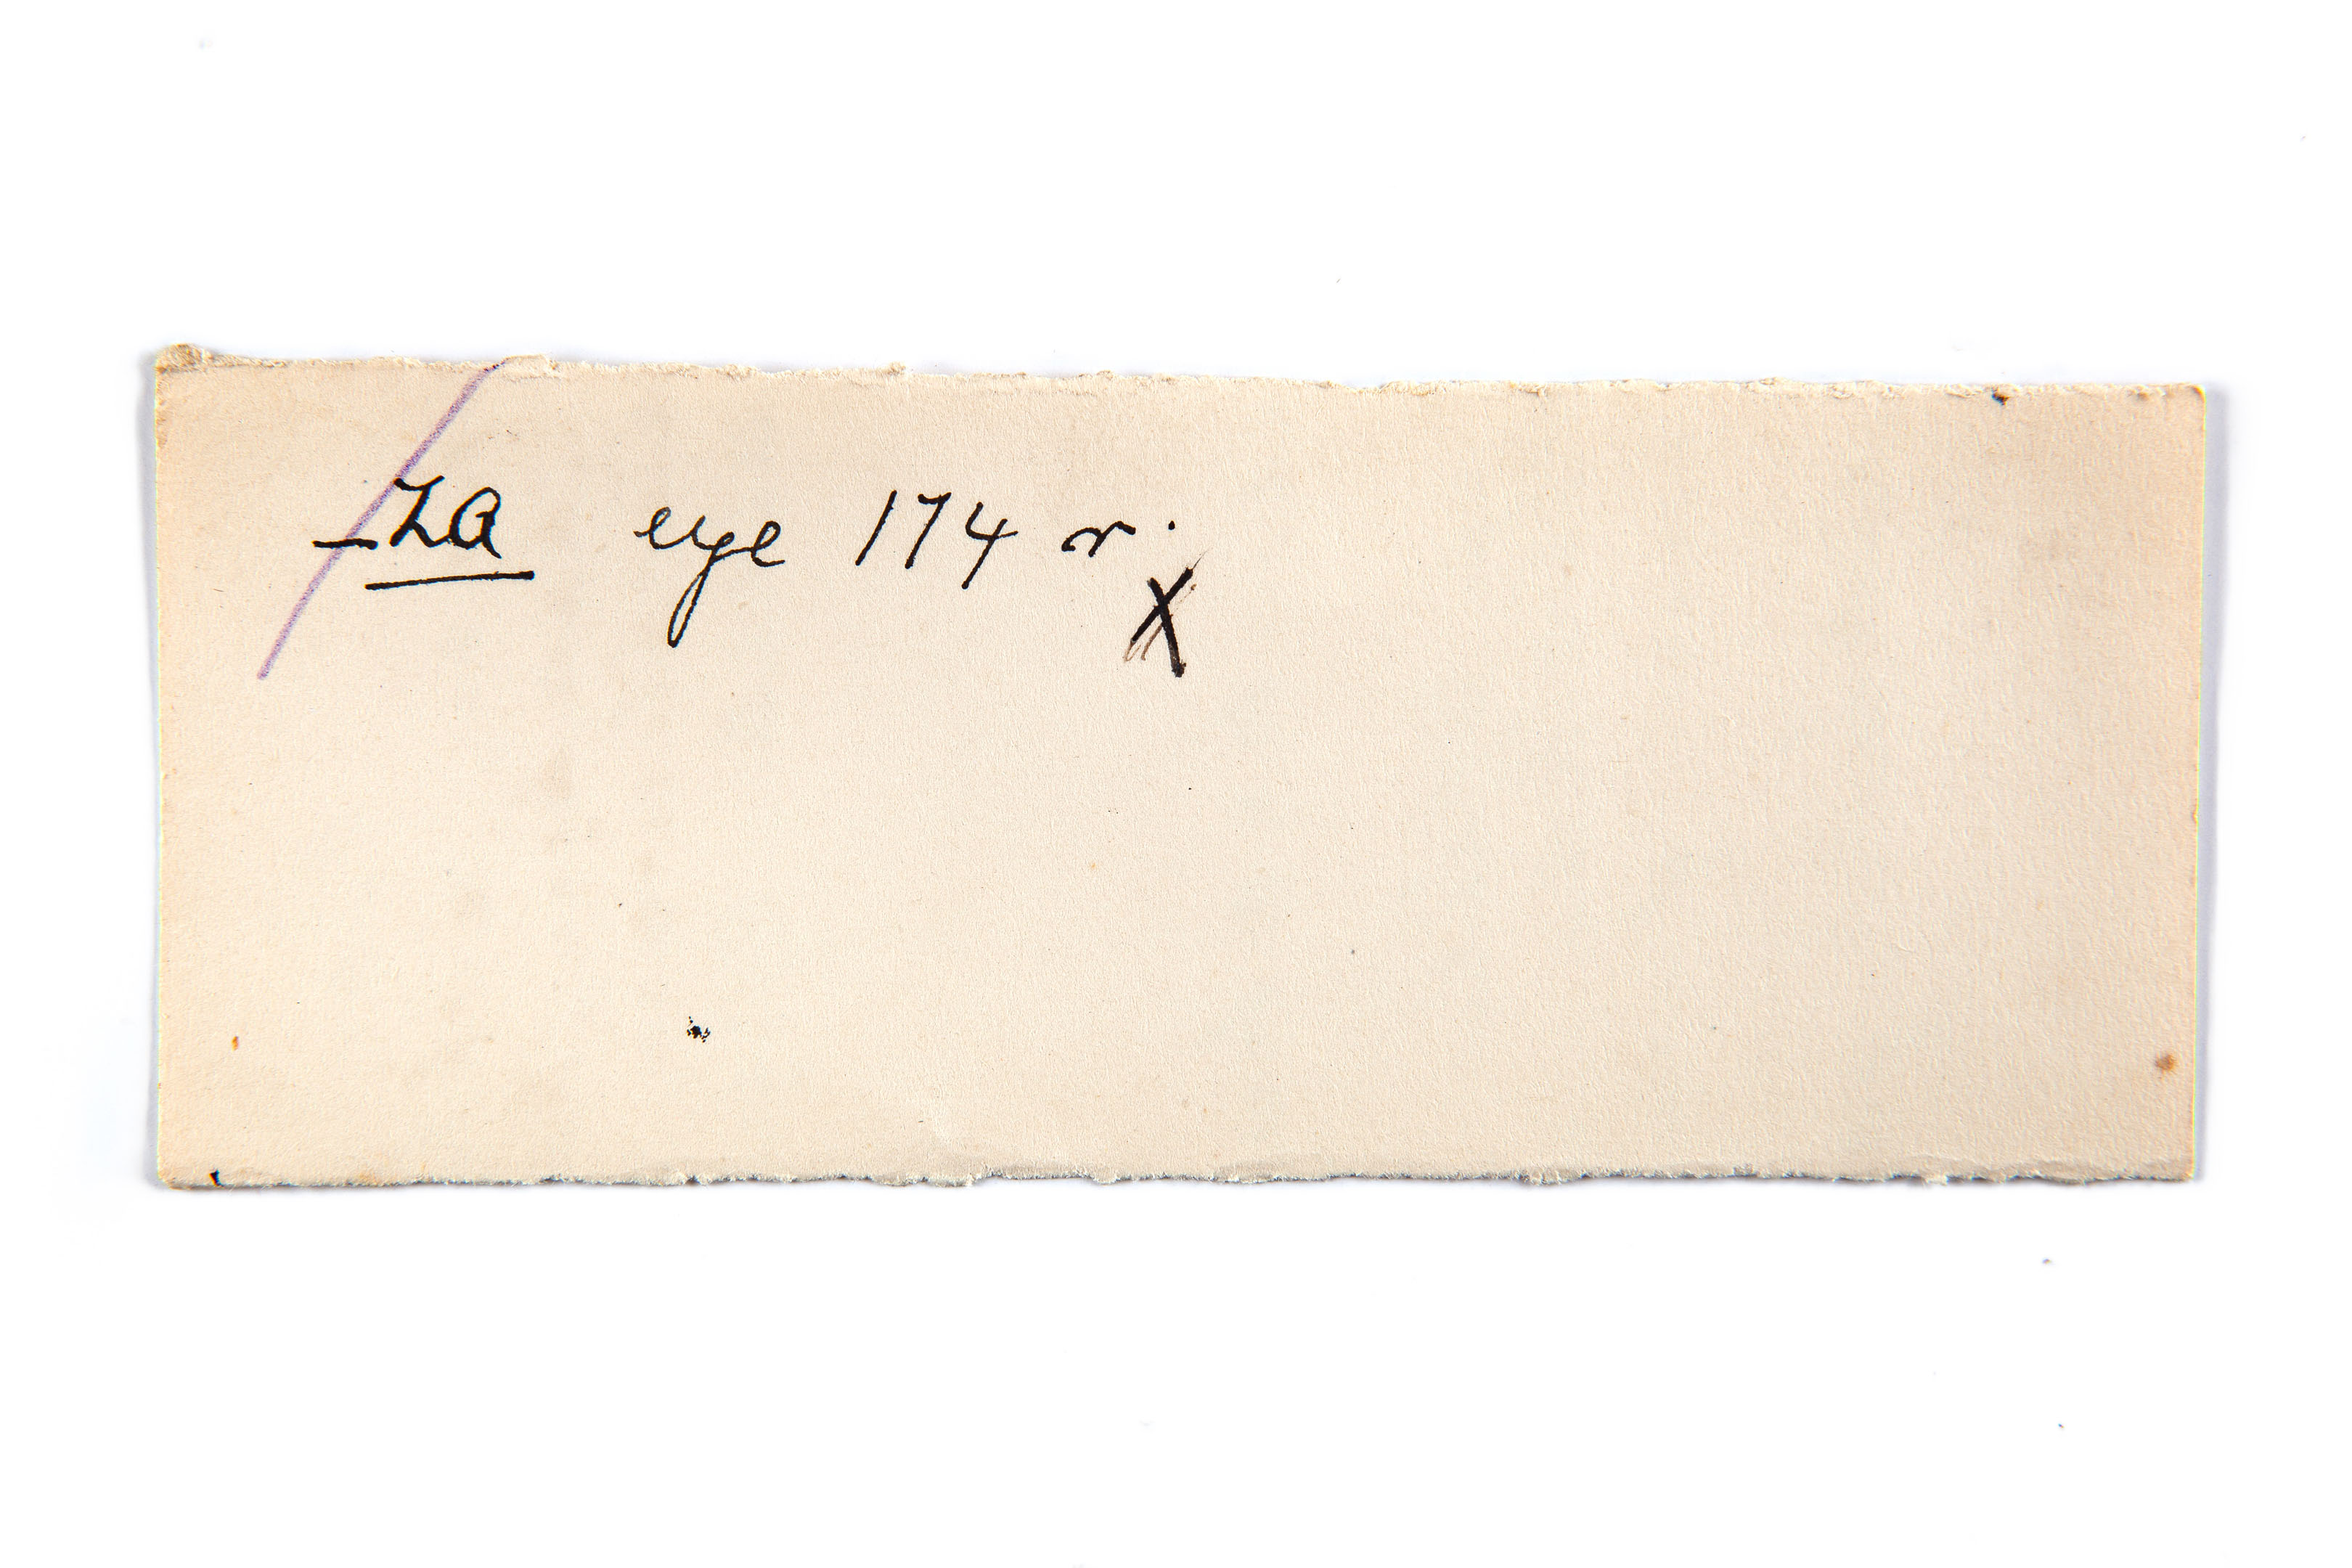 -za eye 174 r.
X